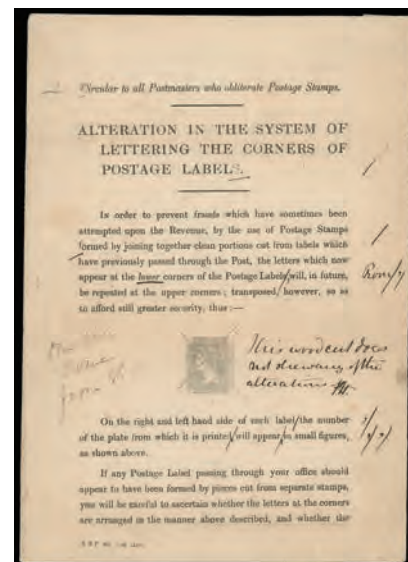 Circular to all Postmasters who obliterate Postage Stamps.
ALTERATION IN THE SYSTEM OF
LETTERING THE CORNERS OF
POSTAGE LABELS.
In order to prevent frauds which have sometimes been
attempted upon the Revenue, by the use of Postage Stamps
formed by joining together clean portions cut from labels which
have previously passed through the Post, the letters which now
appear at the lower corners of the Postage Labels will, in future,
Rom/
be repeated at the upper corners; transposed, however, so as
to afford still greater security, thus:—
This woodcut does
not show any of the
alterations
On the right and left hand side of each label the number
of the plate from which it is printed will appear in small figures,
as shown above.
If any Postage Label passing through your office should
appear to have been formed by pieces cut from separate stamps,
you will be careful to ascertain whether the letters at the corners
are arranged in the manner above described, and whether the